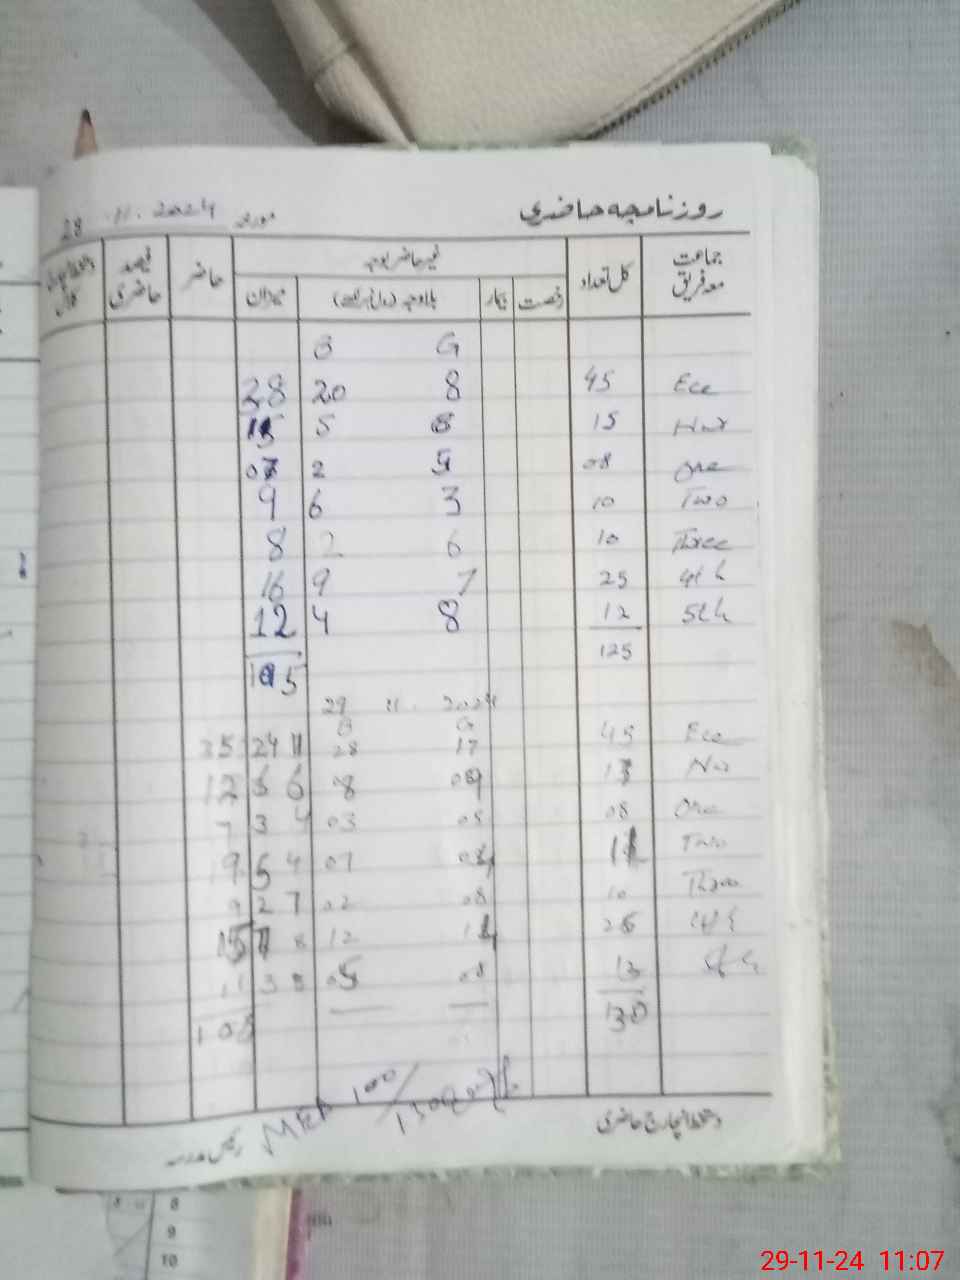 روزنامچہ حاضری مورخہ 28 .11. 2024
جماعت معہ فریق کل تعداد غیر حاضر بوجہ حاضر فیصد حاضری
رخصت بیمار بلاوجہ میزان
B G
28 20 8 45 Ece
5 15
2 5 08 One
9 6 3 10 Two
8 2 6 10 Three
16 9 7 25 4th
12 4 8 12 5th
105 125
29 11. 2024
B G
35 24 11 28 17 45 Ece
12 6 6 08 09 13
7 3 4 03 05 08 One
9 5 4 07 11 Two
9 2 7 02 08 10 Three
15 7 8 12 4th
11 3 8 05 08 13
108 130
100/
دستخط انچارج حاضری
8
9
10
29-11-24 11:07